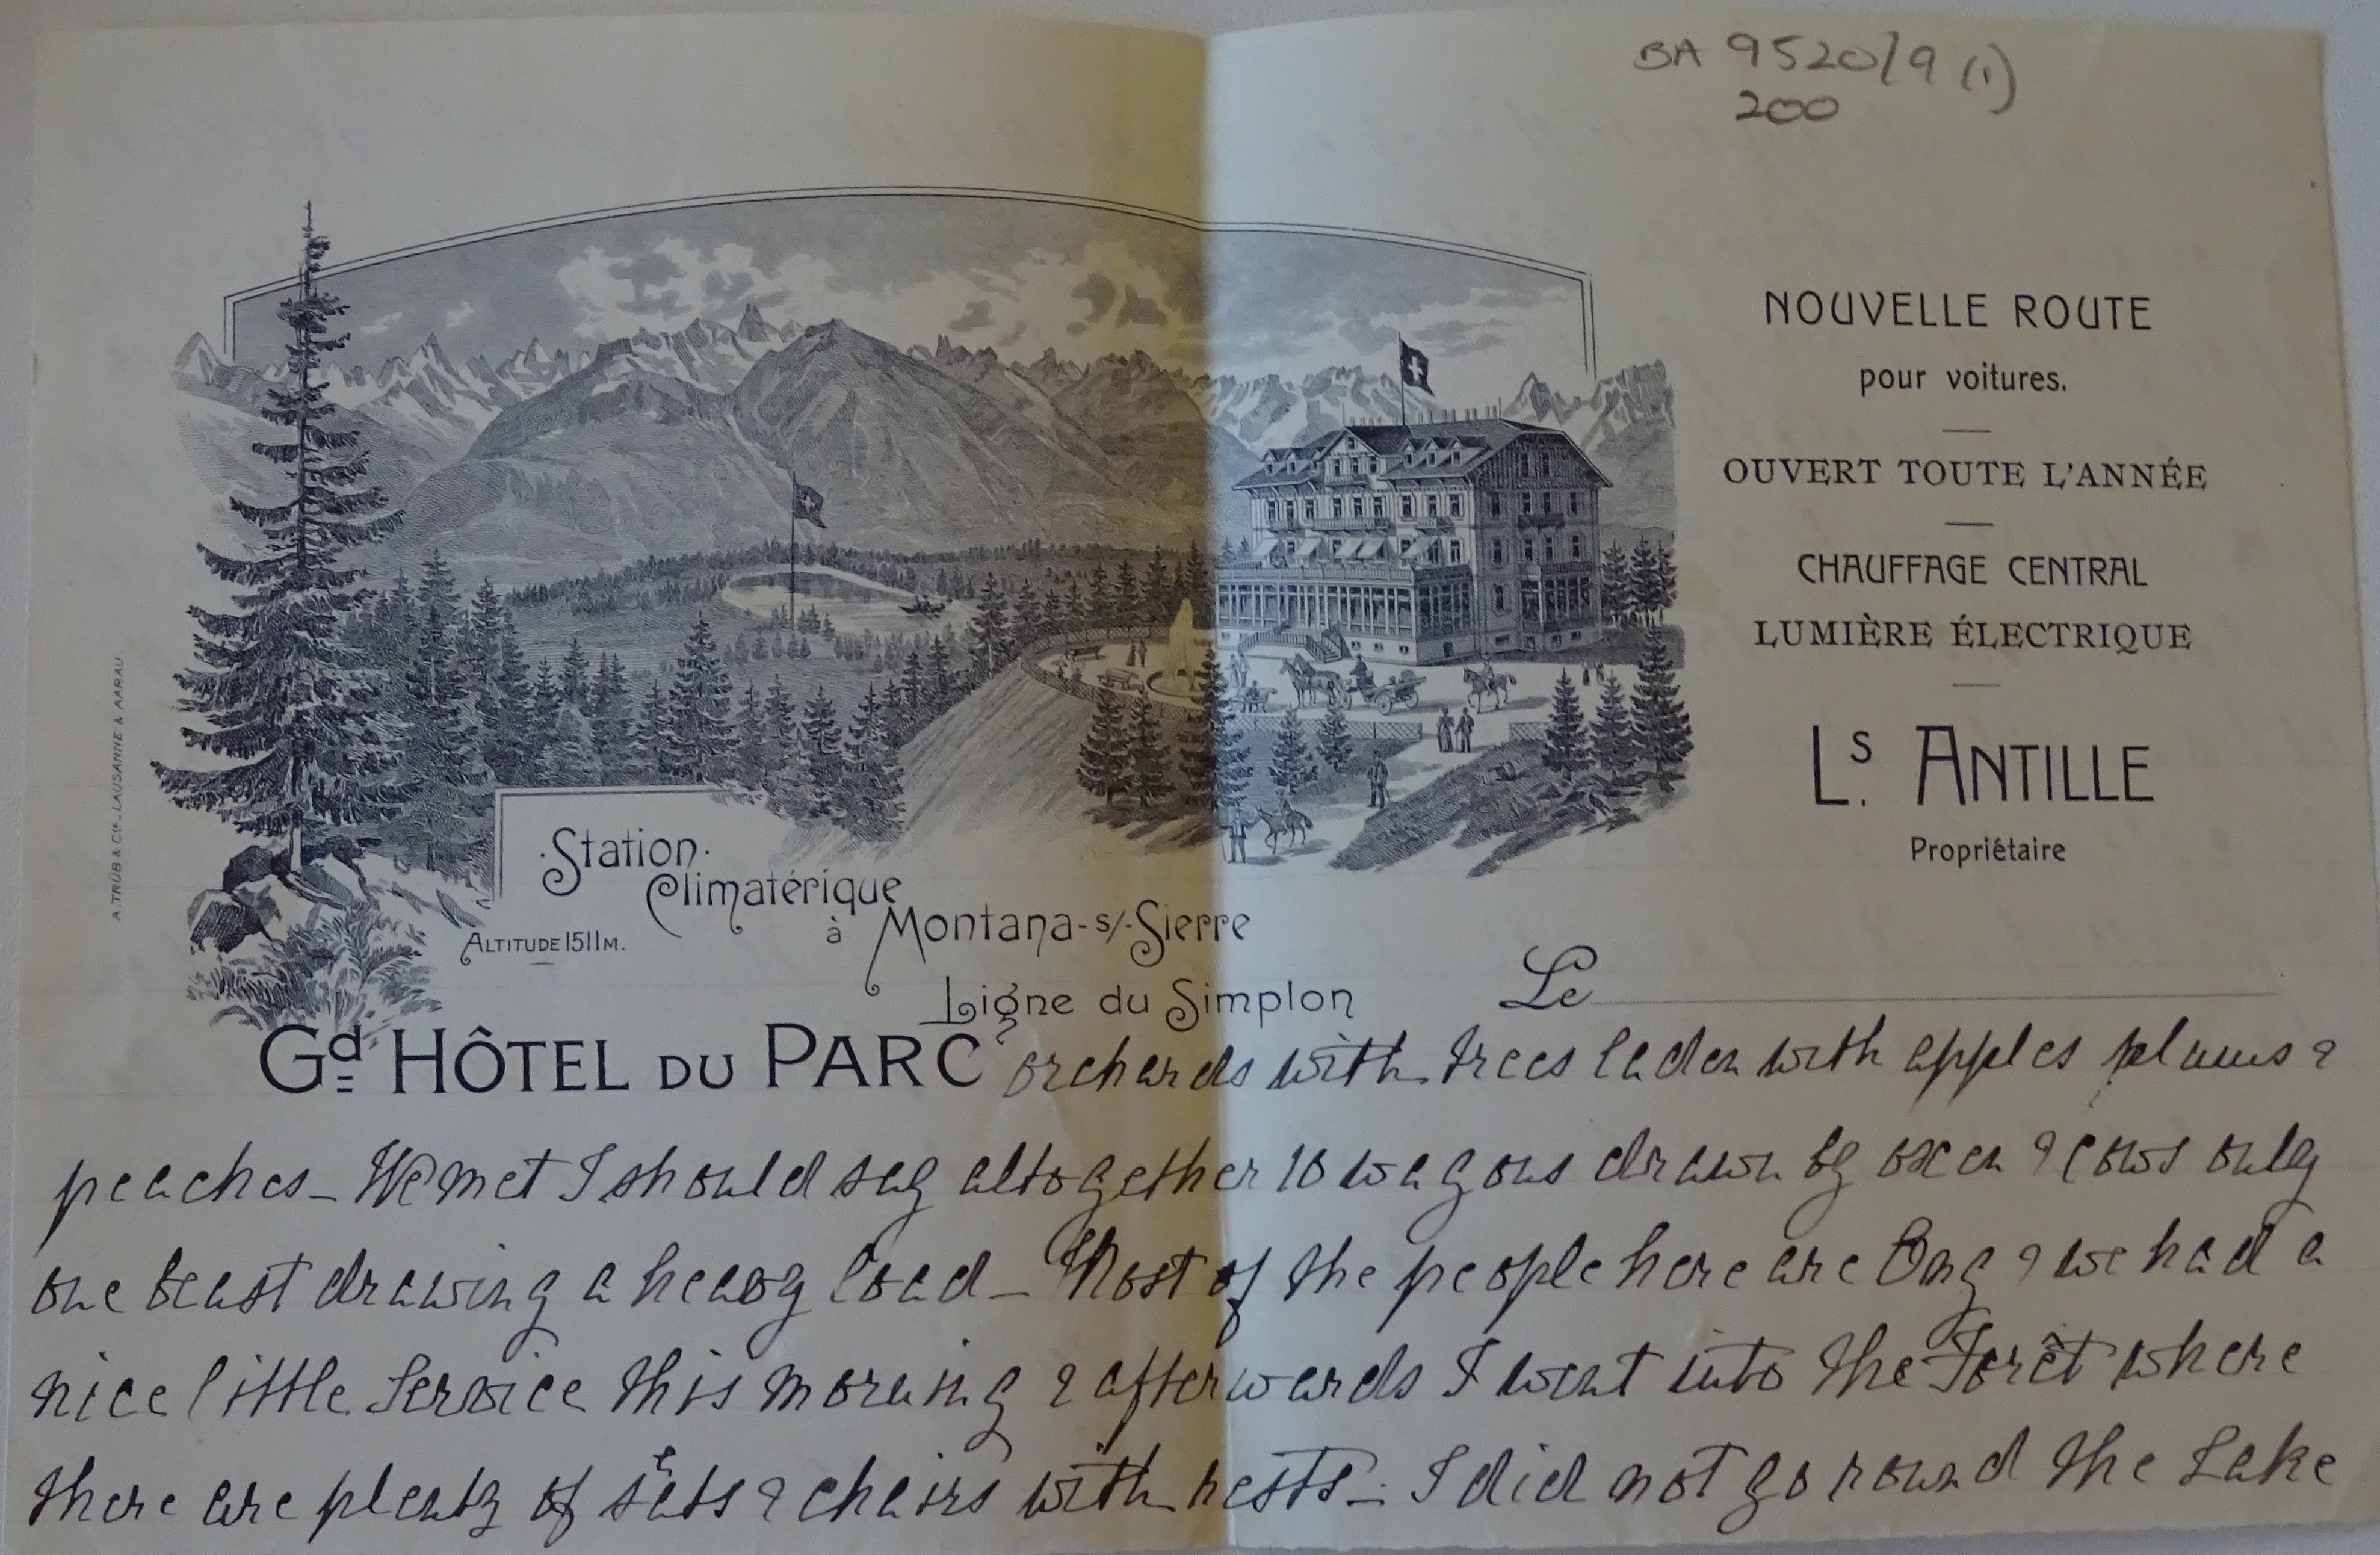 BA 9520/9 (1)
200
NOUVELLE ROUTE
pour voitures.
OUVERT TOUTE L'ANNÉE
CHAUFFAGE CENTRAL
LUMIÈRE ÉLECTRIQUE
Ls. ANTILLE
Propriétaire
A. TRÜB & Cie. LAUSANNE & AARAU
·Station·
Climatérique
à Montana-s/-Sierre
ALTITUDE 1511 M.
Ligne du Simplon
Le
Gd HÔTEL DU PARC
orchards with trees laden with apples plums &
peaches – We met I should say altogether 10 wagons drawn by oxen & cows only
one beast drawing a heavy load – Most of the people here are Eng & we had a
nice little Service this morning & afterwards I went into the Forêt where
there are plenty of seats & chairs with rests – I did not go round the Lake